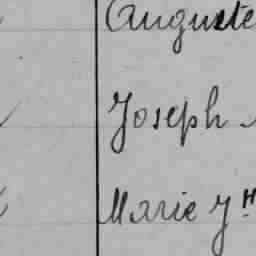 Auguste
Joseph
Marie Jh